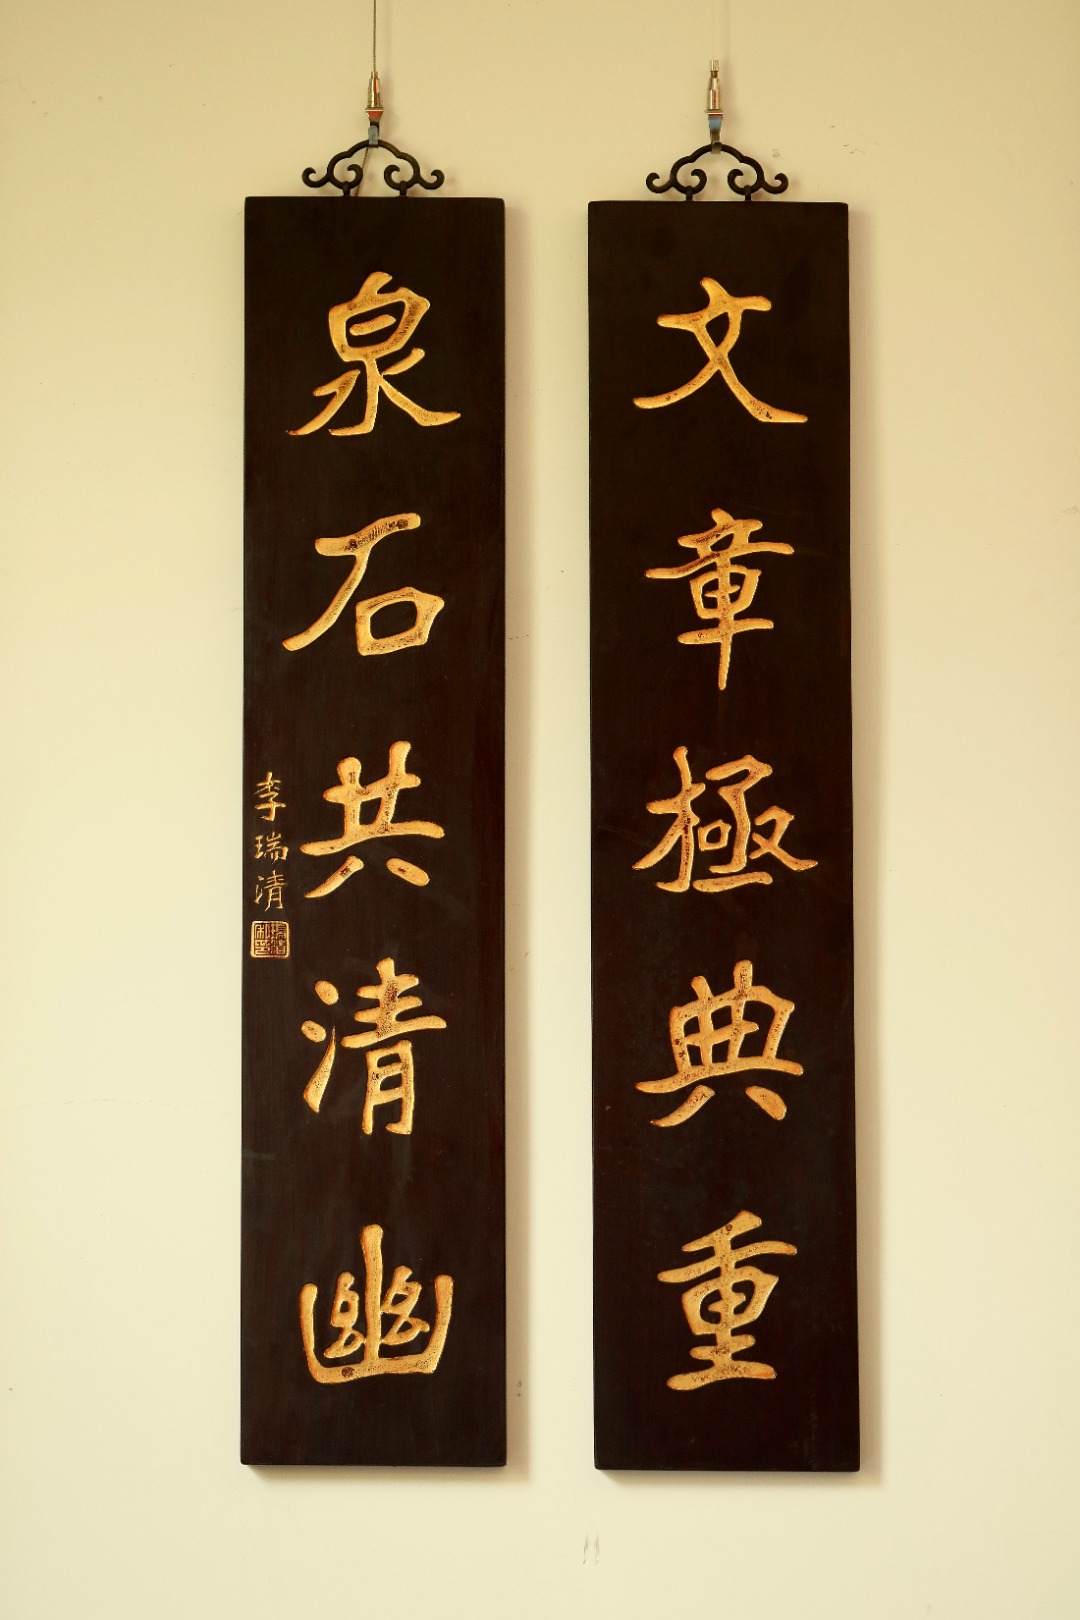 文章極典重
泉石共清幽
李瑞清